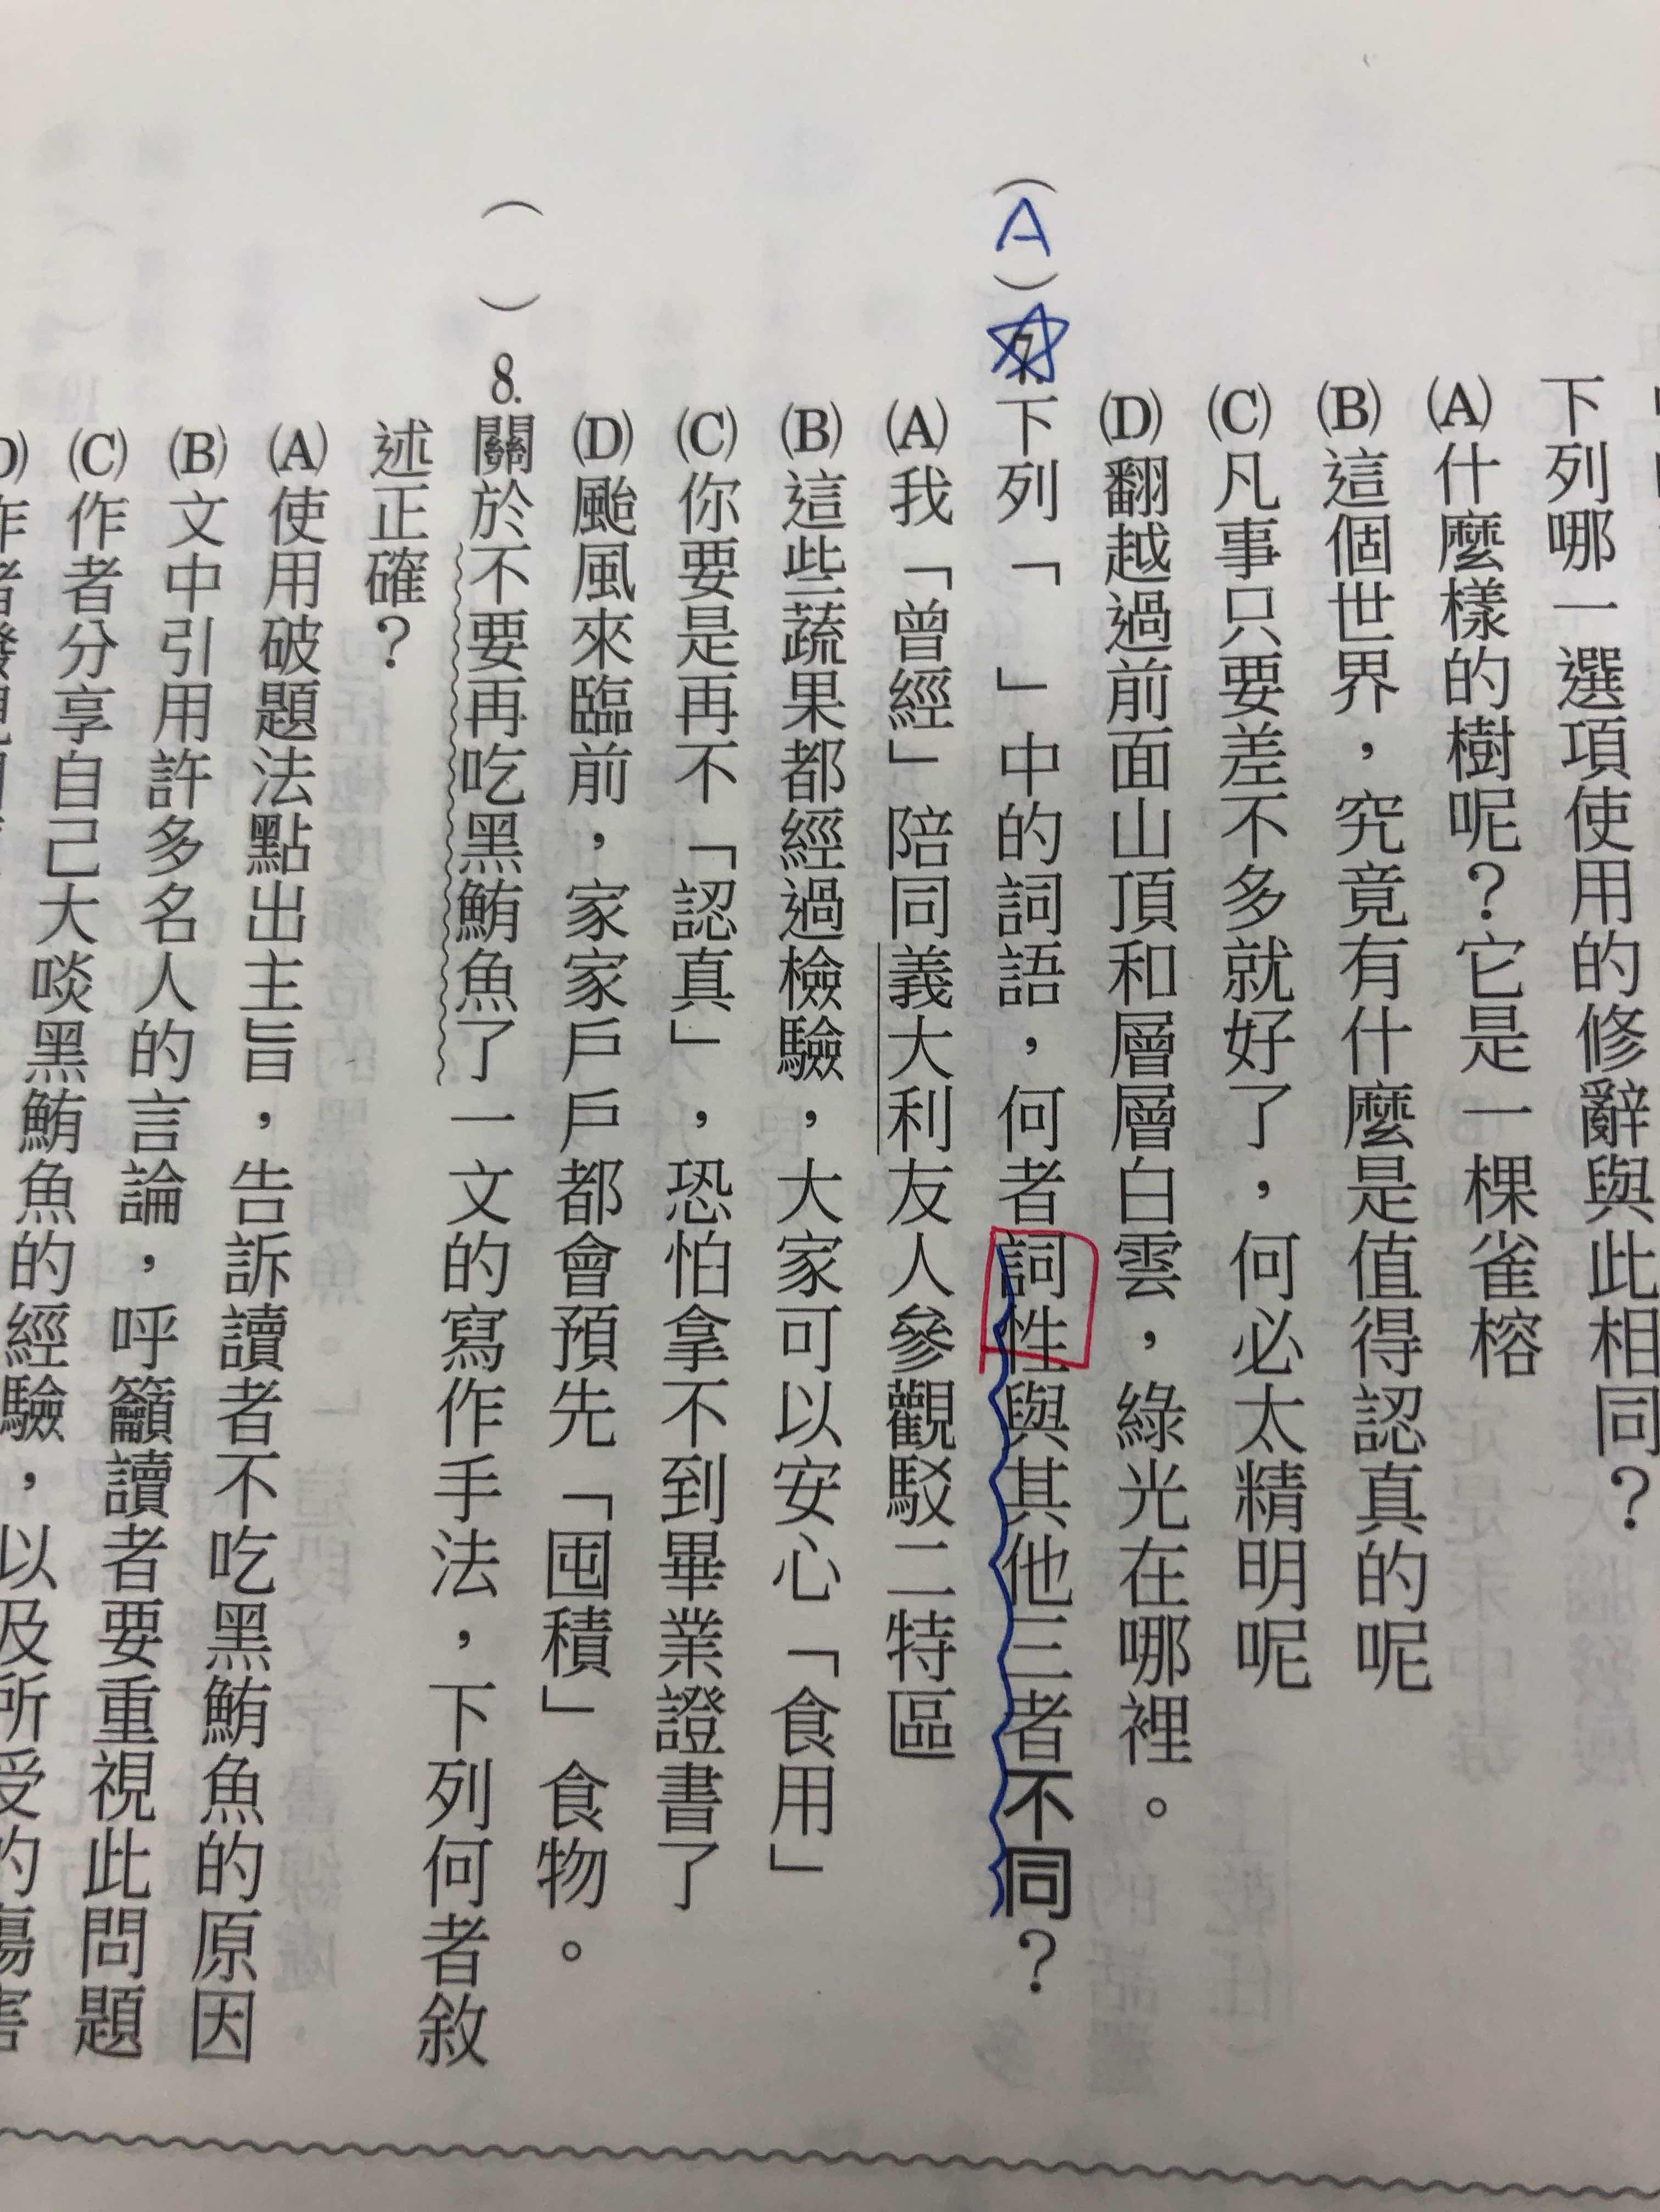 下列哪一選項使用的修辭與此相同？
(A)什麼樣的樹呢？它是一棵雀榕
(B)這個世界，究竟有什麼是值得認真的呢
(C)凡事只要差不多就好了，何必太精明呢
(D)翻越過前面山頂和層層白雲，綠光在哪裡。
(A)7.下列「　」中的詞語，何者詞性與其他三者不同？
(A)我「曾經」陪同義大利友人參觀駁二特區
(B)這些蔬果都經過檢驗，大家可以安心「食用」
(C)你要是再不「認真」，恐怕拿不到畢業證書了
(D)颱風來臨前，家家戶戶都會預先「囤積」食物。
(　)8.關於不要再吃黑鮪魚了一文的寫作手法，下列何者敘
述正確？
(A)使用破題法點出主旨，告訴讀者不吃黑鮪魚的原因
(B)文中引用許多名人的言論，呼籲讀者要重視此問題
(C)作者分享自己大啖黑鮪魚的經驗，以及所受的傷害